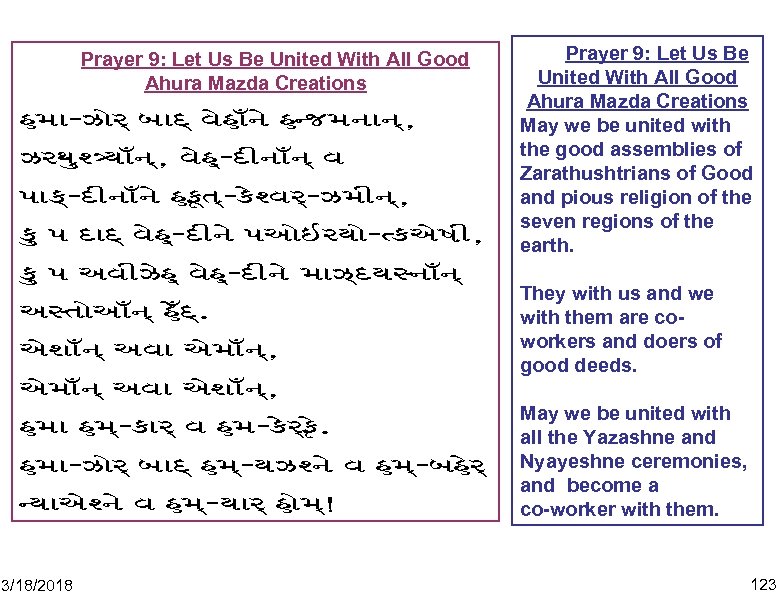 Prayer 9: Let Us Be United With All Good
Ahura Mazda Creations
હમા-ઝોર્ બાદ્ વેહાઁને હન્જમનાન્,
ઝરથુશ્ત્ર્યાઁન્, વેહ્-દીનાઁન્ વ
પાક્-દીનાઁને હફ્ત્-કેશ્વર્-ઝમીન્,
કુ પ દાદ્ વેહ્-દીને પઓઈરયો-ત્કએષી,
કુ પ અવીઝેહ્ વેહ્-દીને માઝ્દયસ્નાઁન્
અસ્તોઆઁન્ હેઁદ્.
એશાઁન્ અવા એમાઁન્,
એમાઁન્ અવા એશાઁન્,
હમા હમ્-કાર્ વ હમ-કેર્ફે.
હમા-ઝોર્ બાદ્ હમ્-યઝશ્ને વ હમ્-બહેર્
ન્યાએશ્ને વ હમ્-યાર્ હોમ્!
Prayer 9: Let Us Be
United With All Good
Ahura Mazda Creations
May we be united with
the good assemblies of
Zarathushtrians of Good
and pious religion of the
seven regions of the
earth.
They with us and we
with them are co-
workers and doers of
good deeds.
May we be united with
all the Yazashne and
Nyayeshne ceremonies,
and become a
co-worker with them.
3/18/2018
123